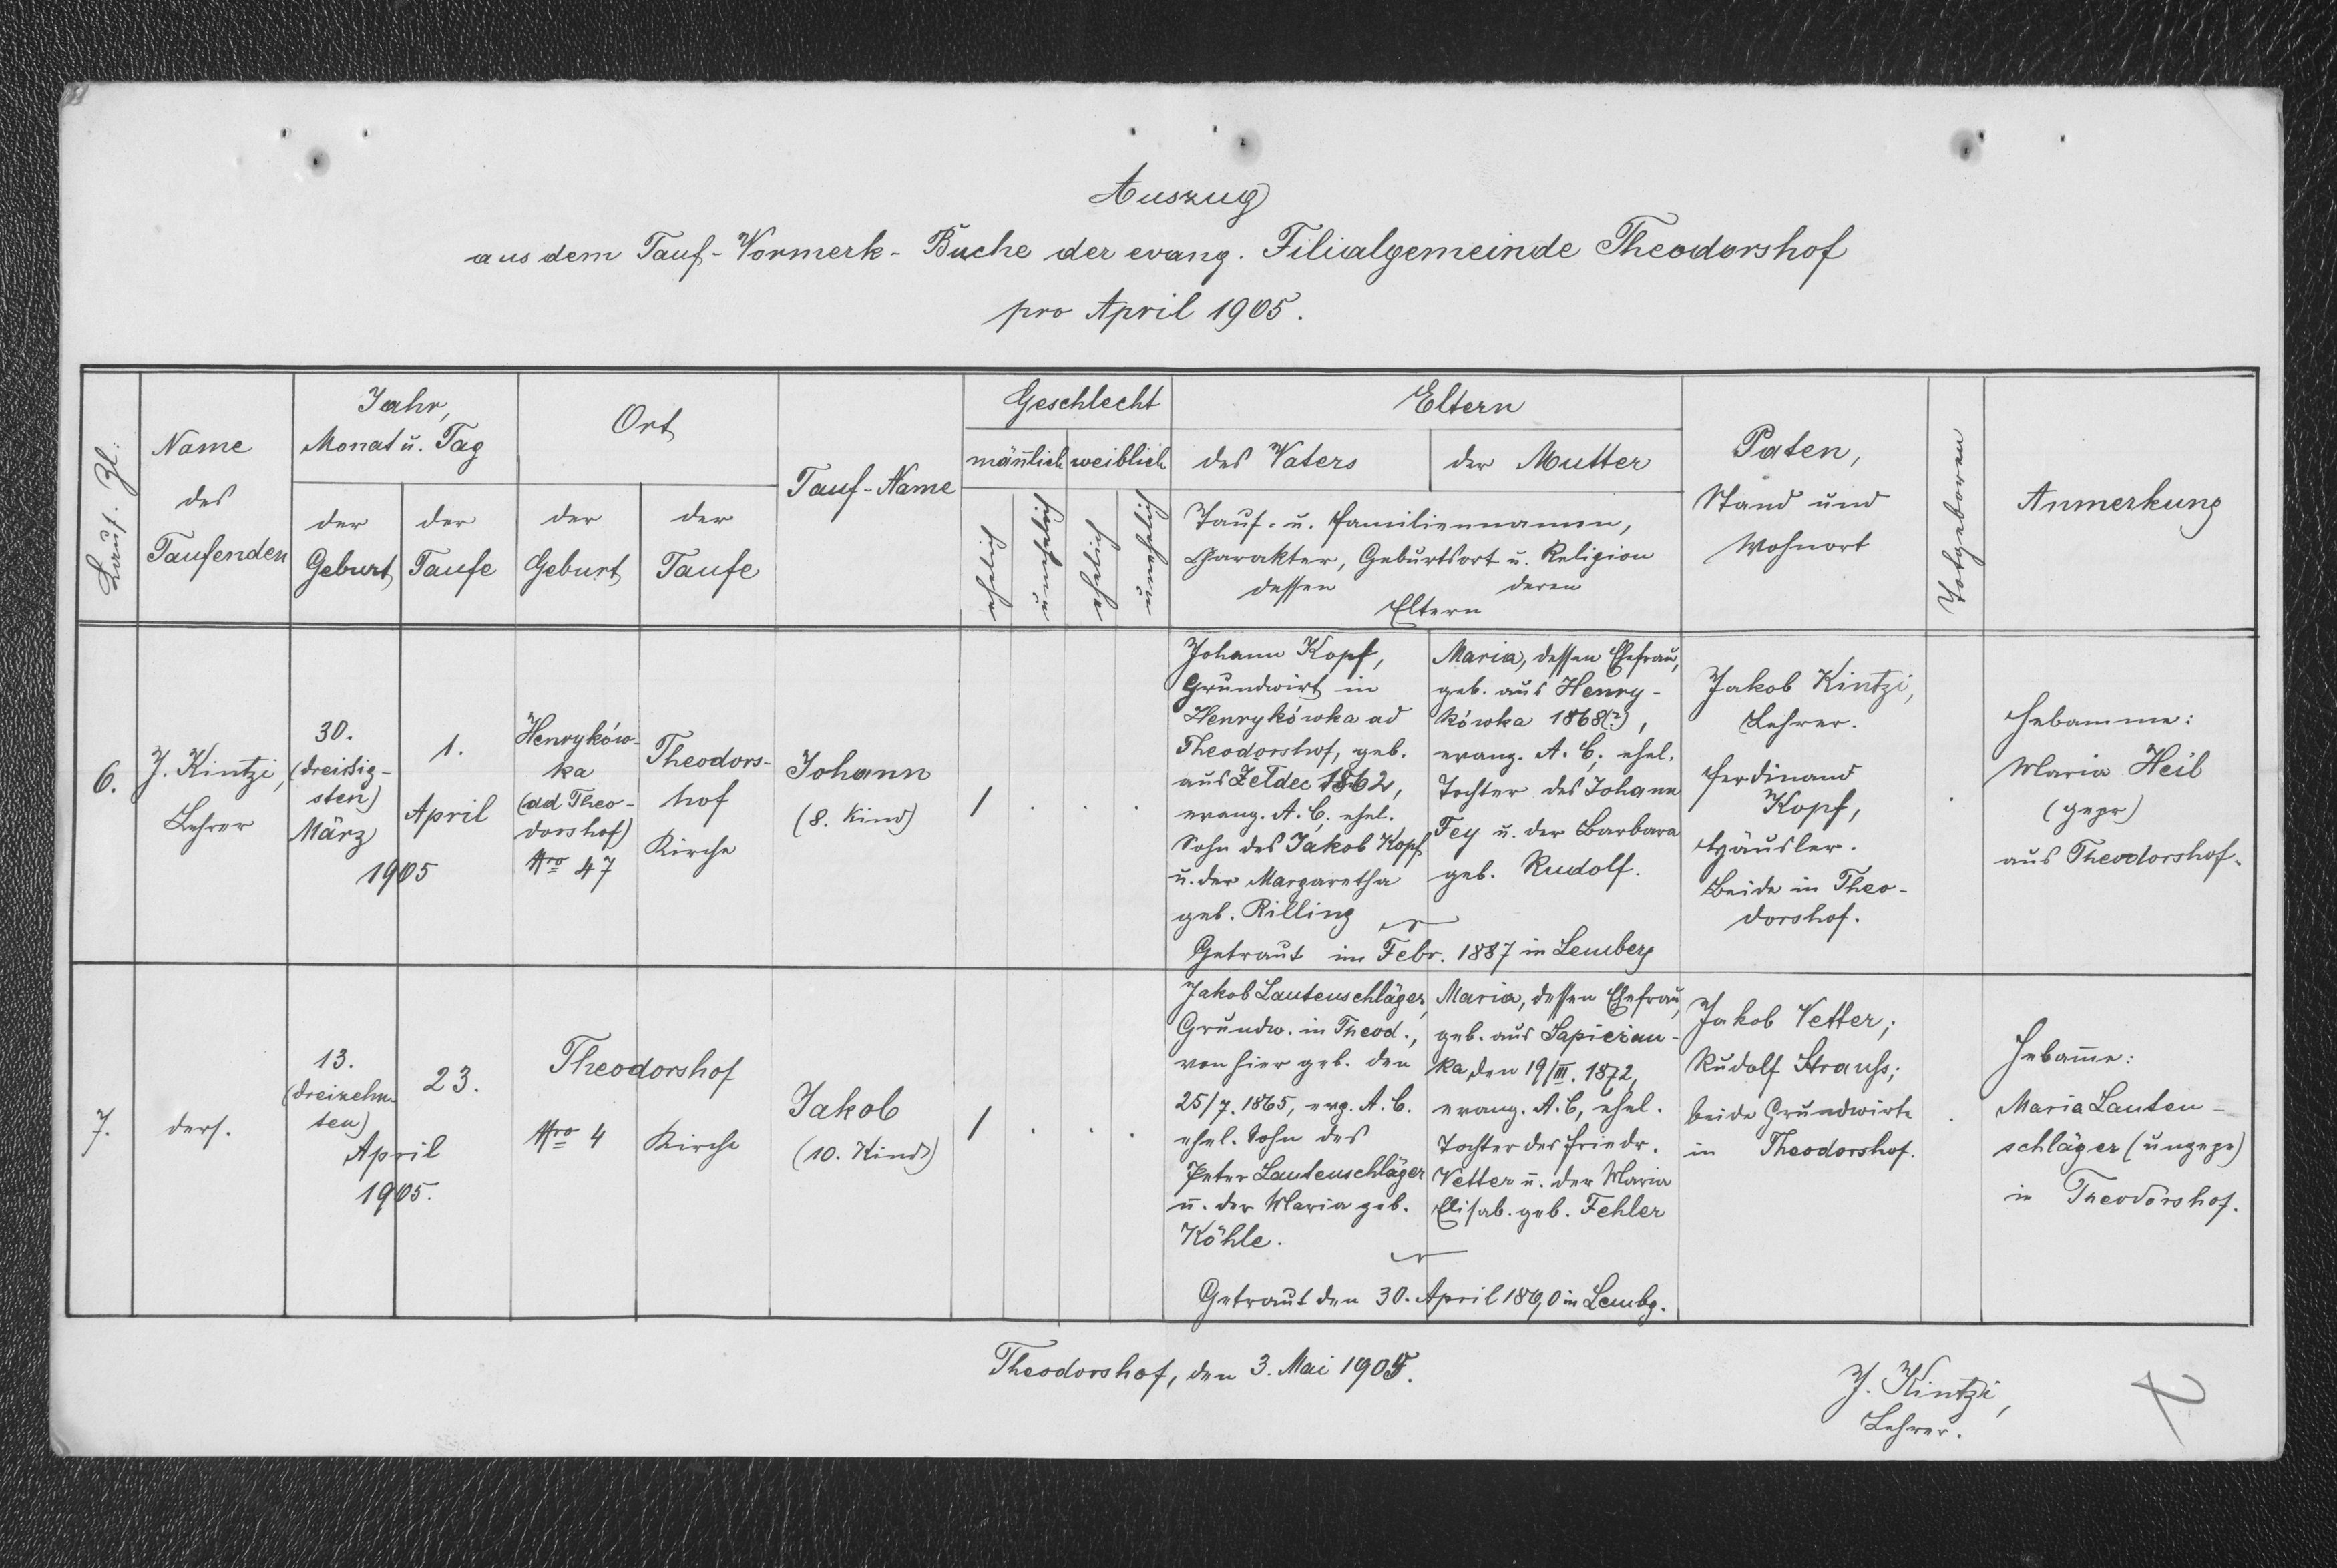 Auszug
aus dem Tauf-Vormerk-Buche der evang. Filialgemeinde Theodorshof
pro April 1905.
Lauf. Zl.:
Name
des
Taufenden
Jahr,
Monat u. Tag
der
Geburt
der
Taufe
Ort
der
Geburt
der
Taufe
Tauf-Name
Geschlecht
mäñlich
weiblich
ehelich
unehelich
ehelich
unehelich
Eltern
des Vaters
der Mutter
Tauf- u. Familiennamen,
Charakter, Geburtsort u. Religion
dessen
deren
Eltern
Paten,
Stand und
Wohnort
Totgeboren
Anmerkung
6.
J. Kintzi,
Lehrer
30.
(dreißig-
sten)
März
1905
1.
April
Henryków-
ka
(ad Theo-
dorshof)
Nro 47
Theodors-
hof
Kirche
Johann
(8. Kind)
1 . . .
Johann Kopf,
Grundwirt in
Henrykówka ad
Theodorshof, geb.
aus Zeldec 1862,
evang. A. C. ehel.
Sohn des Jakob Kopf
u. der Margaretha
geb. Rilling
Maria, dessen Ehefrau,
geb. aus Henry-
kówka 1868(?),
evang. A. C. ehel.
Tochter des Johann
Fey u. der Barbara
geb. Rudolf.
Getraut im Febr. 1887 in Lemberg
Jakob Kintzi,
Lehrer.
Ferdinand
Kopf,
Häusler.
Beide in Theo-
dorshof.
.
Hebamme:
Maria Heil
(gepr)
aus Theodorshof.
7.
ders.
13.
(dreizehn-
ten)
April
1905.
23.
Theodorshof
Nro 4
Kirche
Jakob
(10. Kind)
1 . . .
Jakob Lautenschläger,
Grundw. in Theod.,
von hier geb. den
25/7. 1865, evg. A. C.
ehel. Sohn des
Peter Lautenschläger
u. der Maria geb.
Köhle.
Maria, dessen Ehefrau,
geb. aus Sapieżan-
ka, den 19/III. 1872,
evang. A. C, ehel.
Tochter des Friedr.
Vetter u. der Maria
Elisab. geb. Fehler
Getraut den 30. April 1890 in Lembg.
Jakob Vetter;
Rudolf Strauss;
beide Grundwirte
in Theodorshof.
.
Hebam̅e:
Maria Lauten-
schläger (ungepr)
in Theodorshof.
Theodorshof, den 3. Mai 1905.
J. Kintzi,
Lehrer.